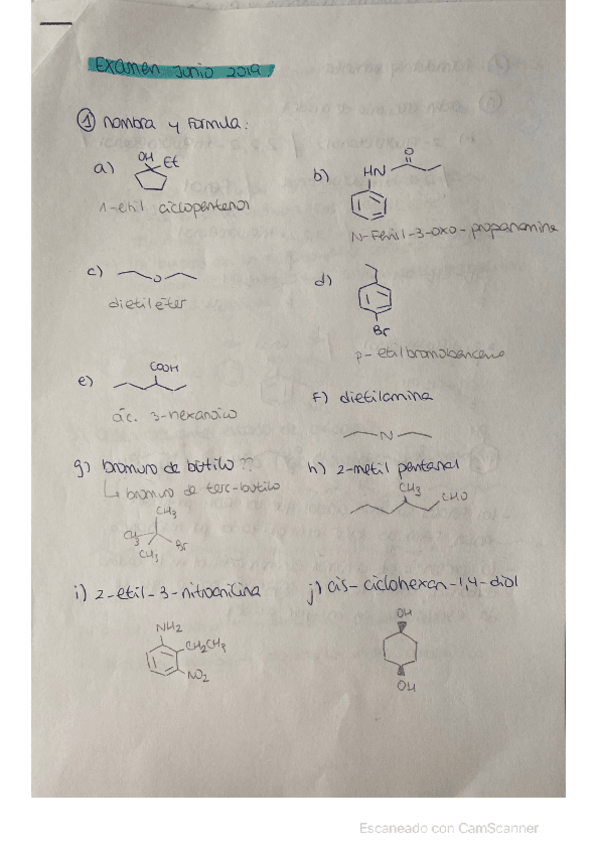 Examen junio 2019
① nombra y formula:
a)
OH
Et
1-etil ciclopentanol
b)
O
HN
N-Fenil-3-oxo-propanamina
c)
O
dietiléter
d)
Br
p-etilbromobenceno
e)
COOH
ác. 3-hexanoico
F) dietilamina
N
g) bromuro de butilo ??
↳ bromuro de terc-butilo
CH3
CH3
Br
CH3
h) 2-metil pentanal
CH3
CHO
i) 2-etil-3-nitroanilina
NH2
CH2CH3
NO2
j) cis-ciclohexan-1,4-diol
OH
OH
Escaneado con CamScanner